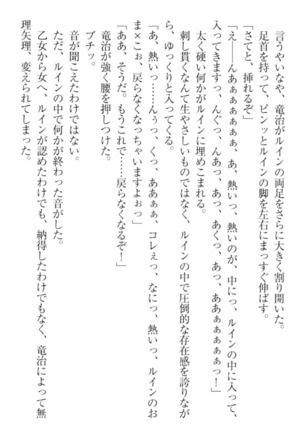 言うやいなや、竜治がルインの両足をさらに大きく割り開いた。
足首を持って、ピンッとルインの脚を左右にまっすぐ伸ばす。
「さてと、挿れるぞ」
「え――んあぁぁぁぁぁ、あ、熱いっっ、熱いのが、中にっ、ルインの中に入って、
入ってきますっっ、んぐっっ、んあっっ、あっっ、あくっっ、あっっ、ああぁぁぁぁぁっ！」
太く硬い何かがルインに埋めこまれる。
刺し貫くなんて生やさしいものではなく、ルインの中で圧倒的な存在感を誇りなが
ら、ゆっくりと入ってくる。
「あ、熱いっっ……んぅっっ、くっっ、ああぁぁ、コレぇっっ、なにっっ、熱いっっ、ルインのお
ま×こぉ、戻らなくなっちゃいますよぉっっ」
「ああ、そうだ。もうこれで……戻らなくなるぞ！」
竜治が強く腰を押しつけた。
ブチッ。
音が聞こえたわけではない。
ただ、ルインの中で何かが終わった音がした。
乙女から女へ、ルインが認めたわけでも、納得したわけでもなく、竜治によって無
理矢理、変えられてしまった。